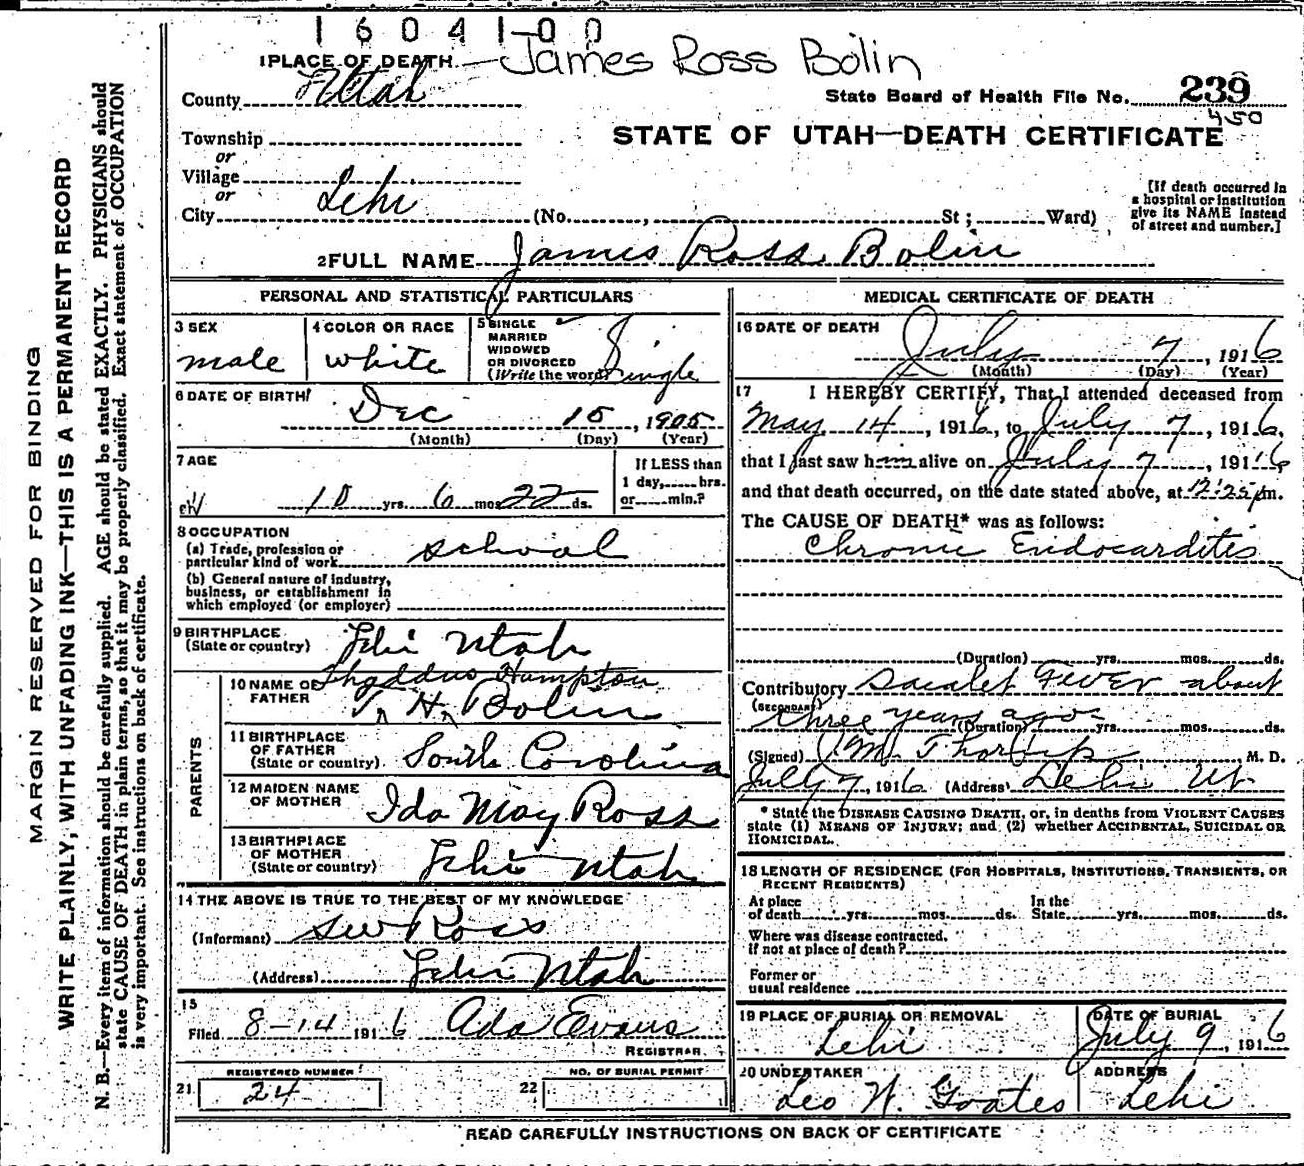 1604100
1 PLACE OF DEATH James Ross Bolin
County Utah
State Board of Health File No. 239
450
Township
or
Village
or
City Lehi (No. , St; Ward)
STATE OF UTAH—DEATH CERTIFICATE
[If death occurred in
a hospital or institution
give its NAME instead
of street and number.]
2 FULL NAME James Ross Bolin
PERSONAL AND STATISTICAL PARTICULARS
3 SEX
male
4 COLOR OR RACE
white
5 SINGLE
MARRIED
WIDOWED
OR DIVORCED
(Write the word) Single
6 DATE OF BIRTH
Dec 15, 1905
(Month) (Day) (Year)
7 AGE
10 yrs. 6 mos. 22 ds.
If LESS than
1 day, hrs.
or min.?
8 OCCUPATION
(a) Trade, profession or
particular kind of work school
(b) General nature of industry,
business, or establishment in
which employed (or employer)
9 BIRTHPLACE
(State or country) Lehi Utah
PARENTS
Thaddus Hampton
10 NAME OF
FATHER T. H. Bolin
11 BIRTHPLACE
OF FATHER
(State or country) South Carolina
12 MAIDEN NAME
OF MOTHER Ida May Ross
13 BIRTHPLACE
OF MOTHER
(State or country) Lehi Utah
14 THE ABOVE IS TRUE TO THE BEST OF MY KNOWLEDGE
(Informant) S W Ross
(Address) Lehi Utah
15
Filed 8-14 1916 Ada Evans
REGISTRAR
REGISTERED NUMBER
21 24
NO. OF BURIAL PERMIT
22
MEDICAL CERTIFICATE OF DEATH
16 DATE OF DEATH
July 7, 1916
(Month) (Day) (Year)
17 I HEREBY CERTIFY, That I attended deceased from
May 14, 1916, to July 7, 1916,
that I last saw him alive on July 7, 1916
and that death occurred, on the date stated above, at 12:25 pm.
The CAUSE OF DEATH* was as follows:
Chronic Endocarditis
(Duration) yrs. mos. ds.
Contributory Scarlet Fever about
(SECONDARY)
three years ago
(Duration) yrs. mos. ds.
(Signed) M. D.
July 7, 1916 (Address) Lehi Ut
* State the DISEASE CAUSING DEATH, or, in deaths from VIOLENT CAUSES
state (1) MEANS OF INJURY; and (2) whether ACCIDENTAL, SUICIDAL OR
HOMICIDAL.
18 LENGTH OF RESIDENCE (FOR HOSPITALS, INSTITUTIONS, TRANSIENTS, OR
RECENT RESIDENTS)
At place
of death yrs. mos. ds.
In the
State yrs. mos. ds.
Where was disease contracted,
If not at place of death?
Former or
usual residence
19 PLACE OF BURIAL OR REMOVAL
Lehi
DATE OF BURIAL
July 9, 1916
20 UNDERTAKER
Leo W. Goates
ADDRESS
Lehi
READ CAREFULLY INSTRUCTIONS ON BACK OF CERTIFICATE
MARGIN RESERVED FOR BINDING
WRITE PLAINLY, WITH UNFADING INK—THIS IS A PERMANENT RECORD
N. B.—Every item of information should be carefully supplied. AGE should be stated EXACTLY. PHYSICIANS should
state CAUSE OF DEATH in plain terms, so that it may be properly classified. Exact statement of OCCUPATION
is very important. See instructions on back of certificate.